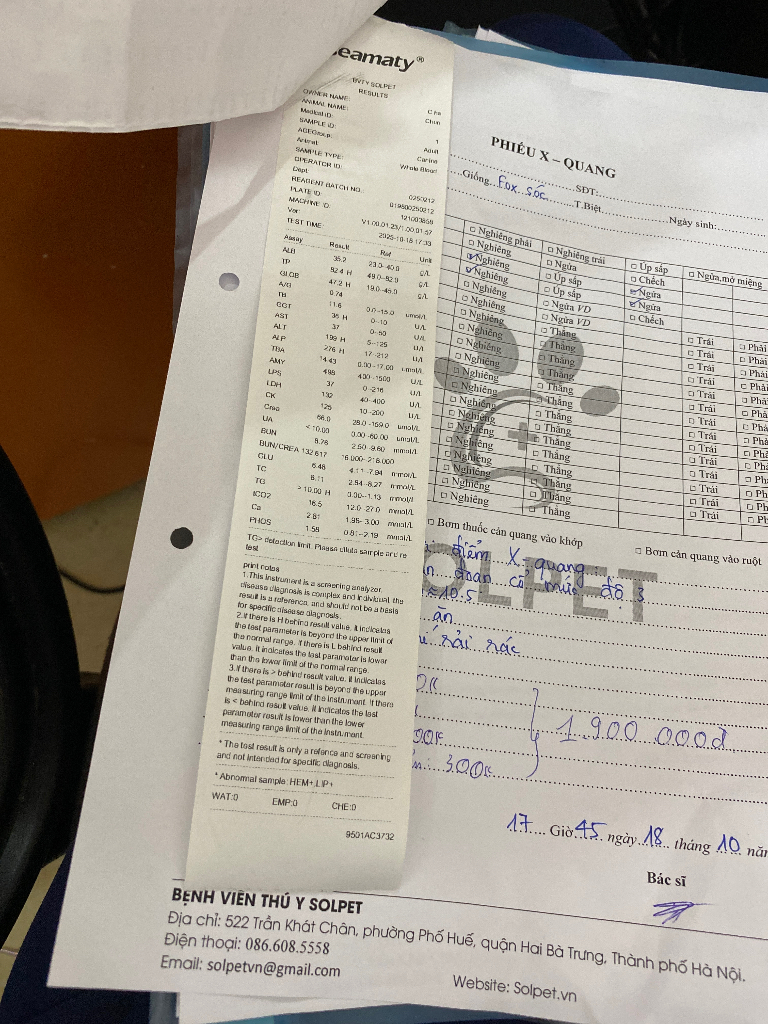 eamaty®
BVTY SOLPET
RESULTS
OWNER NAME:
ANIMAL NAME: Cha
Medical ID: Chun
SAMPLE ID: 1
AGEGroup: Adult
Animal: Canine
SAMPLE TYPE: Whole Blood
OPERATOR ID:
Dept:
REAGENT BATCH NO: 0250212
PLATE ID:
MACHINE ID:
Ver: V1.00.01.23/1.00.01.57
TEST TIME: 2025-10-18 17:33
Assay Result Ref Unit
ALB 35.2 23.0-40.0 g/L
TP 82.4 H 49.0-82.0 g/L
GLOB 47.2 H 19.0-45.0 g/L
A/G 0.74
TB 11.6 0.0-15.0 umol/L
GGT 36 H 0-10 U/L
AST 37 0-50 U/L
ALT 199 H 5-125 U/L
ALP 276 H 17-212 U/L
TBA 14.43 0.00-17.00 umol/L
AMY 498 400-1500 U/L
LPS 37 0-216 U/L
LDH 132 40-400 U/L
CK 125 10-200 U/L
Crea 66.0 28.0-159.0 umol/L
UA < 10.00 0.00-60.00 umol/L
BUN 2.50-9.60 mmol/L
BUN/CREA 132.617 16.000-218.000
GLU 6.48 4.11-7.94 mmol/L
TC 2.84-8.27 mmol/L
TG > 10.00 H 0.00-1.13 mmol/L
tCO2 16.5 12.0-27.0 mmol/L
Ca 2.81 1.95-3.00 mmol/L
PHOS 1.58 0.81-2.19 mmol/L
TG> detection limit. Please dilute sample and re
test
print notes
1.This instrument is a screening analyzer,
disease diagnosis is complex and individual, the
result is a reference, and should not be a basis
for specific disease diagnosis.
2.If there is H behind result value, it indicates
the test parameter is beyond the upper limit of
the normal range. If there is L behind result
value, it indicates the test parameter is lower
than the lower limit of the normal range.
3.If there is > behind result value, it indicates
the test parameter result is beyond the upper
measuring range limit of the instrument. If there
is < behind result value, it indicates the test
parameter result is lower than the lower
measuring range limit of the instrument.
* The test result is only a refence and screening
and not intended for specific diagnosis.
* Abnormal sample :HEM+,LIP+
WAT:0 EMP:0 CHE:0
9501AC3732
PHIẾU X – QUANG
SĐT:
Giống Fox sóc T.Biệt Ngày sinh:
Nghiêng phải Nghiêng trái Úp sấp Ngửa,mở miệng
Nghiêng Ngửa Chếch
Nghiêng Úp sấp Ngửa
Nghiêng Úp sấp Ngửa
Nghiêng Ngửa VD Chếch
Nghiêng Ngửa VD
Nghiêng Thẳng Trái Phải
Nghiêng Thẳng Trái Phải
Nghiêng Thẳng Trái Phải
Nghiêng Thẳng Trái Phải
Nghiêng Thẳng Trái Phải
Nghiêng Thẳng Trái Phải
Nghiêng Thẳng Trái Phải
Nghiêng Thẳng Trái Phải
Nghiêng Thẳng Trái Phải
Nghiêng Thẳng Trái Phải
Nghiêng Thẳng Trái Phải
Nghiêng Thẳng Trái Phải
Bơm thuốc cản quang vào khớp Bơm cản quang vào ruột
điểm X quang:
đoạn cổ mức độ 3
10.5
ăn
rải rác
OLPET
300k
1.900.000đ
17 Giờ 45 ngày 18 tháng 10 năm
Bác sĩ
BỆNH VIỆN THÚ Y SOLPET
Địa chỉ: 522 Trần Khát Chân, phường Phố Huế, quận Hai Bà Trưng, Thành phố Hà Nội.
Điện thoại: 086.608.5558
Email: solpetvn@gmail.com
Website: Solpet.vn